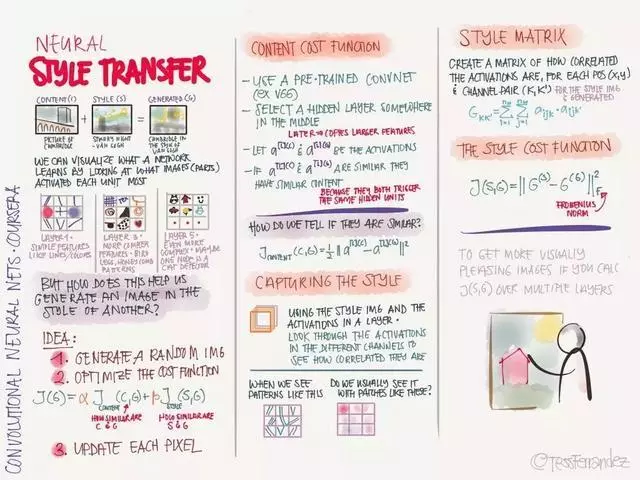 NEURAL
STYLE TRANSFER
CONTENT(C) STYLE(S) GENERATED(G)
+ =
PICTURE OF CAMBRIDGE
STARRY NIGHT - VAN GOGH
CAMBRIDGE IN THE STYLE OF VAN GOGH
WE CAN VISUALIZE WHAT A NETWORK
LEARNS BY LOOKING AT WHAT IMAGES (PARTS)
ACTIVATED EACH UNIT MOST
LAYER 1 -
SIMPLE FEATURES
LIKE LINES/COLORS
LAYER 3 -
MORE COMPLEX
FEATURES - BIRD
LEGS, HONEYCOMB
PATTERNS
LAYER 5 -
EVEN MORE
COMPLEX - MAYBE
ONE NODE IS A
CAT DETECTOR
BUT HOW DOES THIS HELP US
GENERATE AN IMAGE IN THE
STYLE OF ANOTHER?
IDEA:
1. GENERATE A RANDOM IMG
2. OPTIMIZE THE COST FUNCTION
J(G) = α J CONTENT (C,G) + β J STYLE (S,G)
HOW SIMILAR ARE
C & G
HOW SIMILAR ARE
S & G
3. UPDATE EACH PIXEL
CONVOLUTIONAL NEURAL NETS · COURSERA
CONTENT COST FUNCTION
- USE A PRE-TRAINED CONVNET
(EX VGG)
- SELECT A HIDDEN LAYER SOMEWHERE
IN THE MIDDLE
LATER → COPIES LARGER FEATURES
- LET a^[l](C) & a^[l](G) BE THE ACTIVATIONS
- IF a^[l](C) & a^[l](G) ARE SIMILAR THEY
HAVE SIMILAR CONTENT
BECAUSE THEY BOTH TRIGGER
THE SAME HIDDEN UNITS
HOW DO WE TELL IF THEY ARE SIMILAR?
J CONTENT (C,G) = 1/2 || a^[l](C) - a^[l](G) ||²
CAPTURING THE STYLE
USING THE STYLE IMG AND THE
ACTIVATIONS IN A LAYER -
LOOK THROUGH THE ACTIVATIONS
IN THE DIFFERENT CHANNELS TO
SEE HOW CORRELATED THEY ARE
WHEN WE SEE
PATTERNS LIKE THIS
DO WE USUALLY SEE IT
WITH PATCHES LIKE THESE?
STYLE MATRIX
CREATE A MATRIX OF HOW CORRELATED
THE ACTIVATIONS ARE, FOR EACH POS (X,Y)
& CHANNEL-PAIR (K,K') FOR THE STYLE IMG
& GENERATED
THE STYLE COST FUNCTION
J(S,G) = || G^(S) - G^(G) ||²_F
FROBENIUS
NORM
TO GET MORE VISUALLY
PLEASING IMAGES IF YOU CALC
J(S,G) OVER MULTIPLE LAYERS
@TessFerrandez